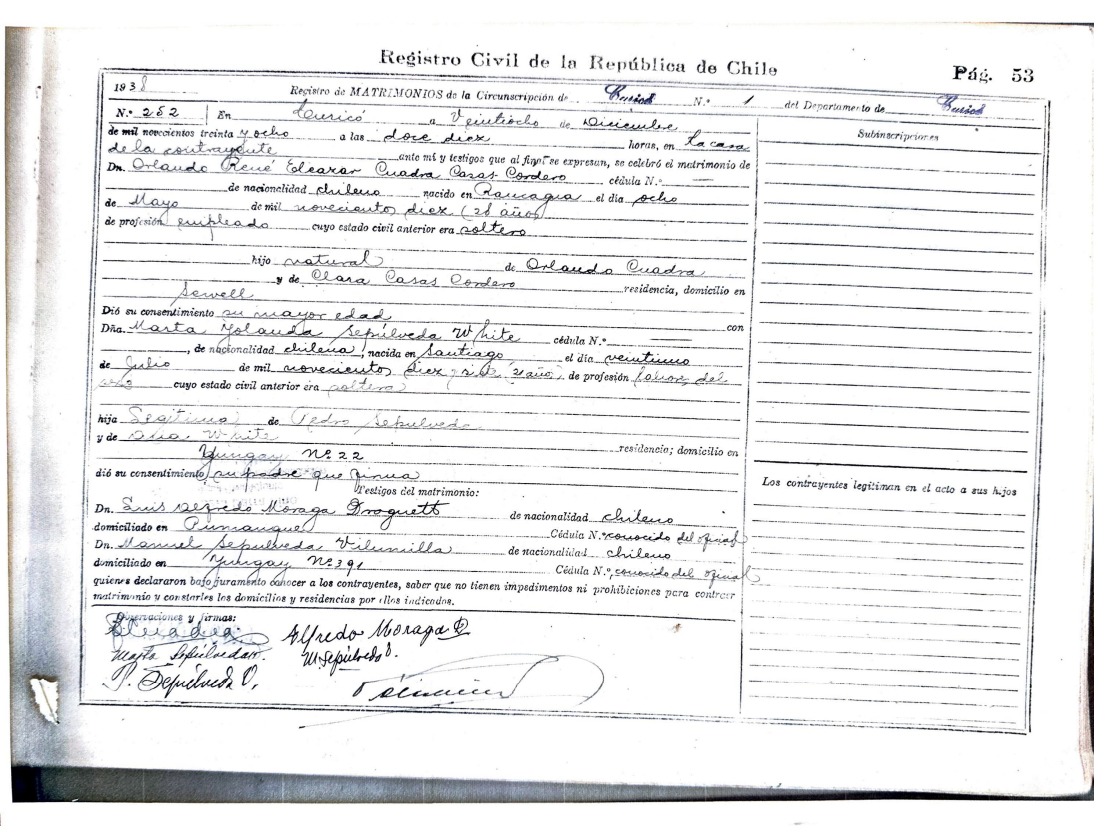 Registro Civil de la República de Chile
Pág. 53
1938 Registro de MATRIMONIOS de la Circunscripción de Curicó N.° 1 del Departamento de Curicó
N.° 252 En Curicó a Veintiocho de Diciembre
de mil novecientos treinta y ocho a las doce diez horas, en la casa
de la contrayente
ante mí y testigos que al final se expresan, se celebró el matrimonio de
Dn. Orlando René Eleazar Cuadra Casas Cordero cédula N.° —
de nacionalidad chileno nacido en Rancagua el día ocho
de Mayo de mil novecientos diez (28 años)
de profesión empleado cuyo estado civil anterior era soltero
hijo natural de Orlando Cuadra
y de Clara Casas Cordero residencia, domicilio en
Sewell
Dió su consentimiento su mayor edad con
Dña. Marta Yolanda Sepúlveda White cédula N.° —
, de nacionalidad chilena, nacida en Santiago el día veintiuno
de Julio de mil novecientos diez y siete 21 años, de profesión labores del
sexo cuyo estado civil anterior era soltera
hija Legítima de Pedro Sepúlveda
y de Ana White
residencia; domicilio en
Yungay N° 22
dió su consentimiento su padre que firma
Testigos del matrimonio:
Dn. Luis Alfredo Moraga Droguett de nacionalidad chileno
domiciliado en Pumanque Cédula N.° conocido del oficial
Dn. Manuel Sepúlveda de nacionalidad chileno
domiciliado en Yungay N° 391 Cédula N.°, conocido del oficial
quienes declararon bajo juramento conocer a los contrayentes, saber que no tienen impedimentos ni prohibiciones para contraer
matrimonio y constarles los domicilios y residencias por ellos indicados.
Observaciones y firmas:
Alfredo Moraga D
Marta Sepúlveda W. M. Sepúlveda
P. Sepúlveda O.
Subinscripciones
Los contrayentes legitiman en el acto a sus hijos